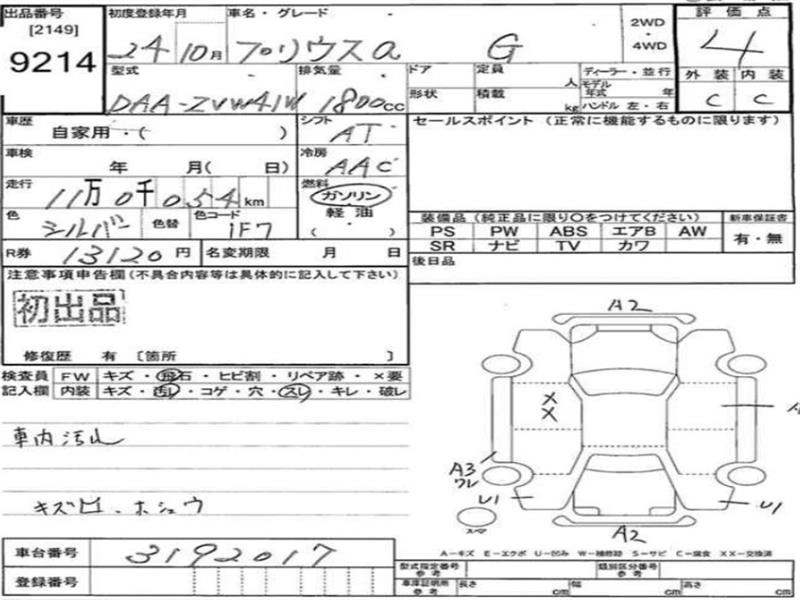 出品番号
[2149]
9214
初度登録年月
24 10月
車名・グレード
プリウスα G
2WD
・
4WD
評価点
4
外装 内装
C C
型式
DAA-ZVW41W
排気量
1800cc
ドア
形状
定員 人
積載 kg
ディーラー・並行
モデル年式 年
ハンドル 左・右
車歴
自家用・( )
シフト
AT
セールスポイント (正常に機能するものに限ります)
車検
年 月( 日)
冷房
AAC
走行
11万0千054km
燃料
ガソリン
軽油
( ・ )
色
シルバー
色替
色コード
1F7
装備品 (純正品に限り○をつけてください)
新車保証書
PS PW ABS エアB AW
SR ナビ TV カワ
有・無
R券 13120円
名変期限 月 日
後日品
注意事項申告欄(不具合内容等は具体的に記入して下さい)
初出品
修復歴 有 [箇所 ]
検査員 FW キズ・飛石・ヒビ割・リペア跡・×要
記入欄 内装 キズ・汚レ・コゲ・穴・スレ・キレ・破レ
車内汚レ
A2
X
X
A3
ワレ
U1
U1
スペア
A2
A-キズ E-エクボ U-凹み W-補修跡 S-サビ C-腐食 XX-交換済
車台番号 3192017
登録番号
型式指定番号
参考
類別区分番号
参考
車庫証明用
参考
長さ cm
幅 cm
高さ cm